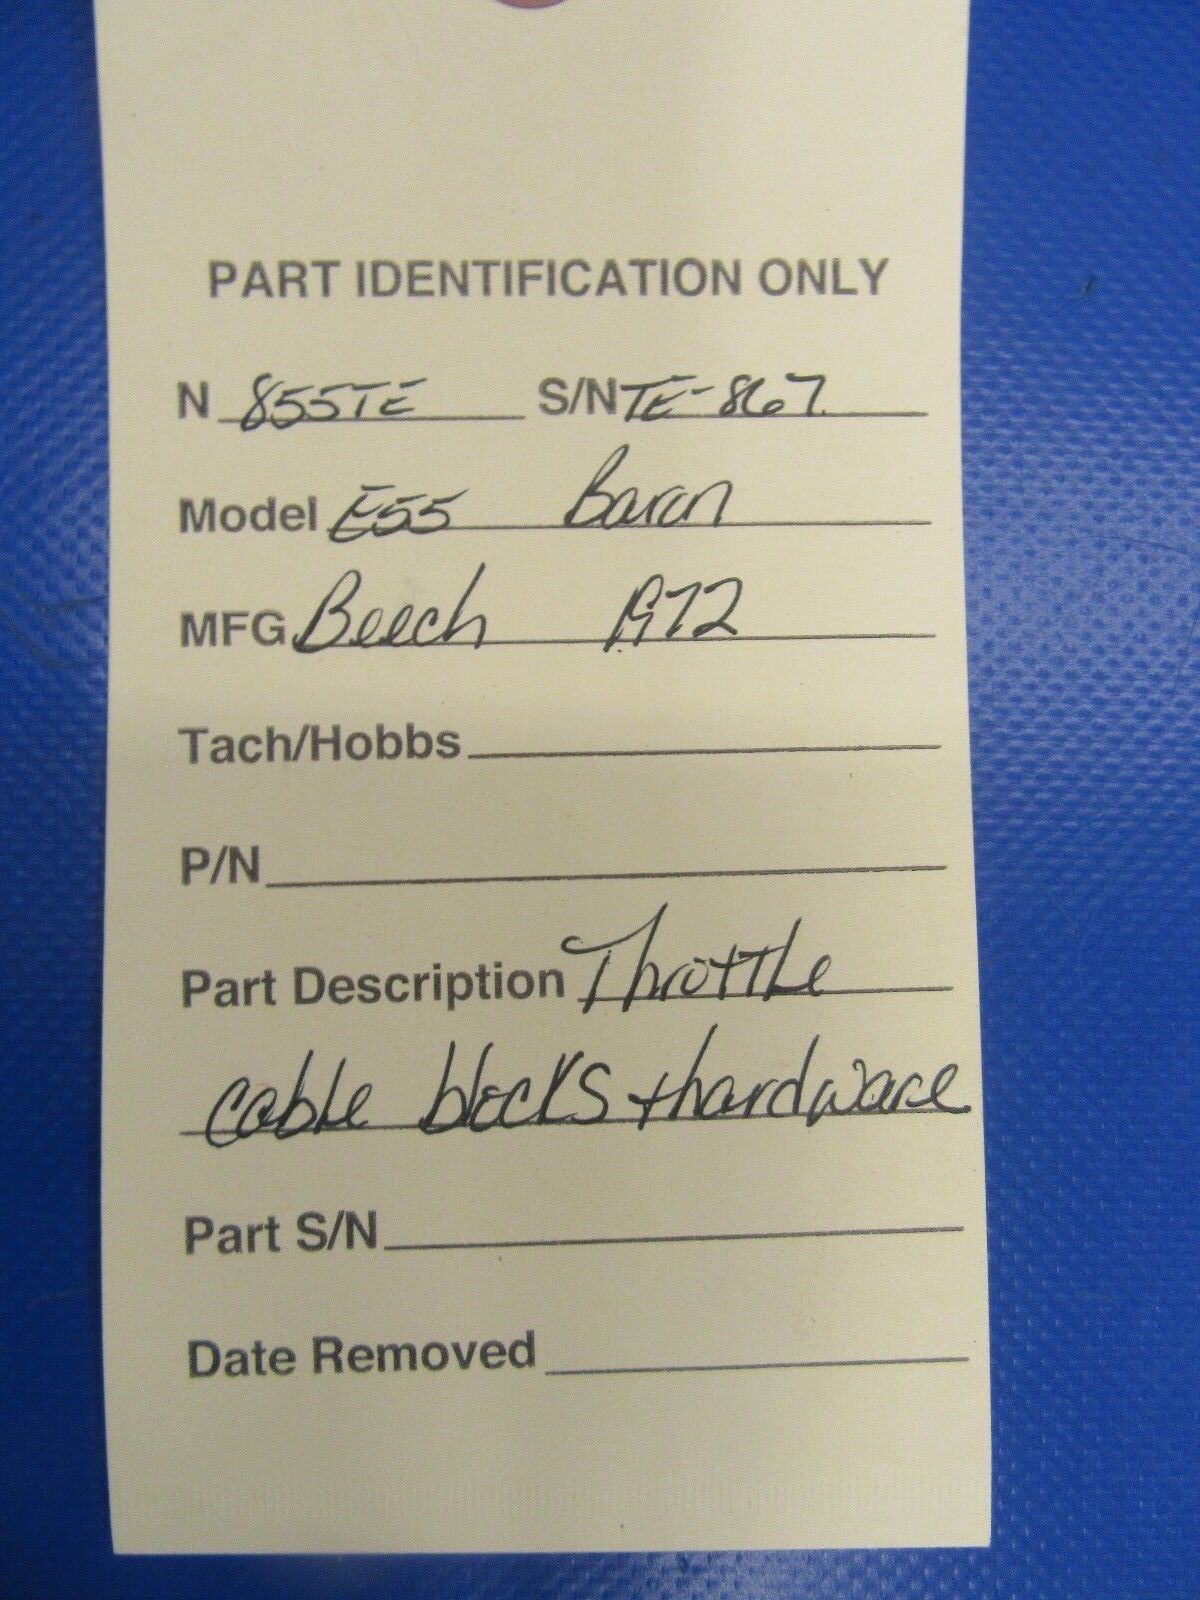 PART IDENTIFICATION ONLY
N 855TE S/N TE-867
Model E55 Baron
MFG Beech 1972
Tach/Hobbs
P/N
Part Description Throttle
cable blocks + hardware
Part S/N
Date Removed